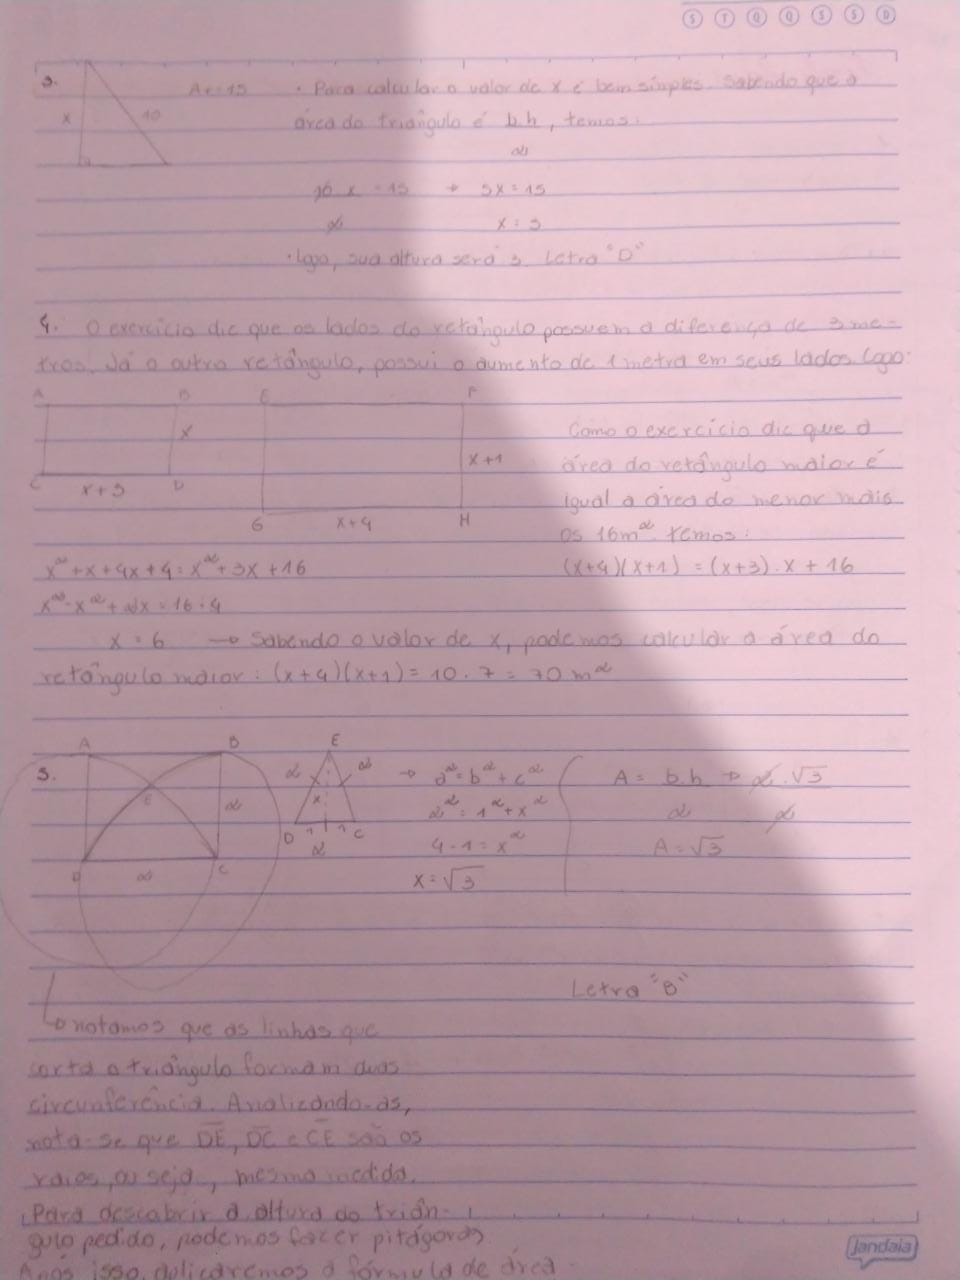 S T Q Q S S D
3.
x
10
A = 15 • Para calcular o valor de x é bem simples. Sabendo que a
área do triângulo é b.h, temos:
2
10 x = 15 → 5x = 15
2 x = 3
• Logo, sua altura será 3. Letra "D"
4. O exercício dic que os lados do retângulo possuem a diferença de 3 me-
tros. Já o outro retângulo, possui o aumento de 1 metra em seus lados. Logo:
A B E F
x
C x+3 D
x+1
G x+4 H
Como o exercício dic que a
área do retângulo maior é
igual a área do menor mais
os 16m² temos:
(x+4)(x+1) = (x+3).x + 16
x² + x + 4x + 4 = x² + 3x + 16
x² - x² + 2x = 16 - 4
x = 6 → Sabendo o valor de x, podemos calcular a área do
retângulo maior: (x+4)(x+1) = 10.7 = 70 m²
5.
A B
E
2
D 2 C
E
2 2
x
D 1 1 C
2
→ a² = b² + c²
2² = 1² + x²
4 - 1 = x²
x = √3
A = b.h → 2.√3
2 2
A = √3
Letra "B"
→ notamos que as linhas que
corta o triângulo formam duas
circunferência. Analizando-as,
nota-se que DE, DC e CE são os
raios, ou seja, mesma medida.
Para descobrir a altura do triân-
gulo pedido, podemos fazer pitágoras
Após isso, aplicaremos a fórmula de área.
jandaia